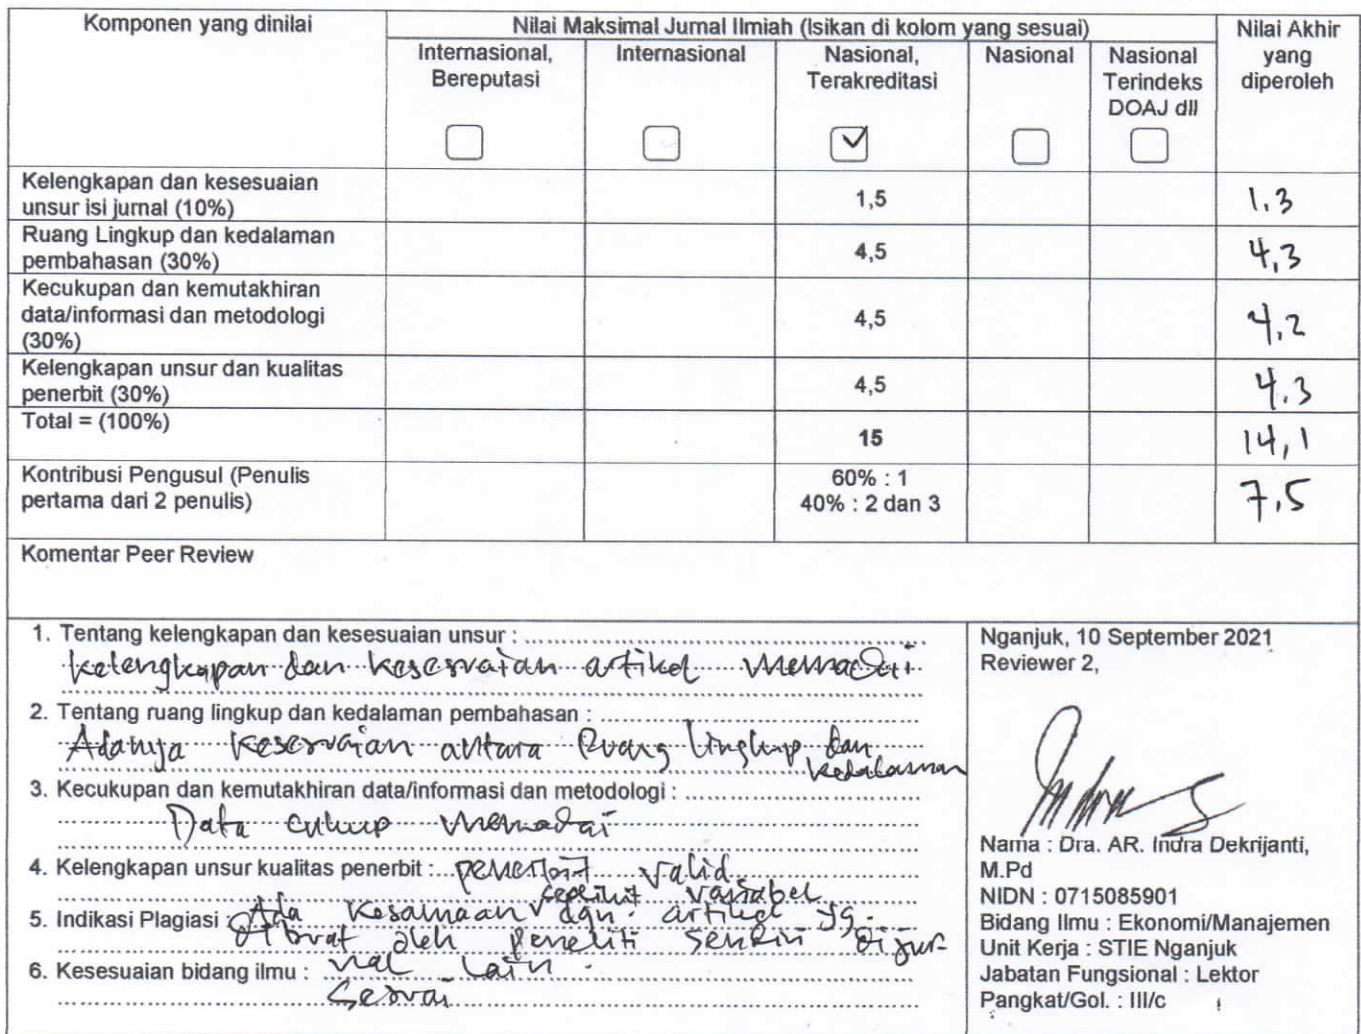 Komponen yang dinilai
Nilai Maksimal Jurnal Ilmiah (Isikan di kolom yang sesuai)
Nilai Akhir
yang
diperoleh
Internasional,
Bereputasi
Internasional
Nasional,
Terakreditasi
Nasional
Nasional
Terindeks
DOAJ dll
Kelengkapan dan kesesuaian
unsur isi jurnal (10%)
1,5
1,3
Ruang Lingkup dan kedalaman
pembahasan (30%)
4,5
4,3
Kecukupan dan kemutakhiran
data/informasi dan metodologi
(30%)
4,5
4,2
Kelengkapan unsur dan kualitas
penerbit (30%)
4,5
4.3
Total = (100%)
15
14,1
Kontribusi Pengusul (Penulis
pertama dari 2 penulis)
60% : 1
40% : 2 dan 3
7,5
Komentar Peer Review
1. Tentang kelengkapan dan kesesuaian unsur :
kelengkapan dan kesesuaian artikel memadai
2. Tentang ruang lingkup dan kedalaman pembahasan :
Adanya kesesuaian antara Ruang lingkup dan
kedalaman
3. Kecukupan dan kemutakhiran data/informasi dan metodologi :
Data cukup memadai
4. Kelengkapan unsur kualitas penerbit : penerbit valid
sedikit variabel
5. Indikasi Plagiasi : Ada kesamaan dgn. artikel yg.
dibuat oleh peneliti sendiri dijur-
6. Kesesuaian bidang ilmu : nal lain.
Sesuai
Nganjuk, 10 September 2021
Reviewer 2,
Nama : Dra. AR. Indra Dekrijanti,
M.Pd
NIDN : 0715085901
Bidang Ilmu : Ekonomi/Manajemen
Unit Kerja : STIE Nganjuk
Jabatan Fungsional : Lektor
Pangkat/Gol. : III/c